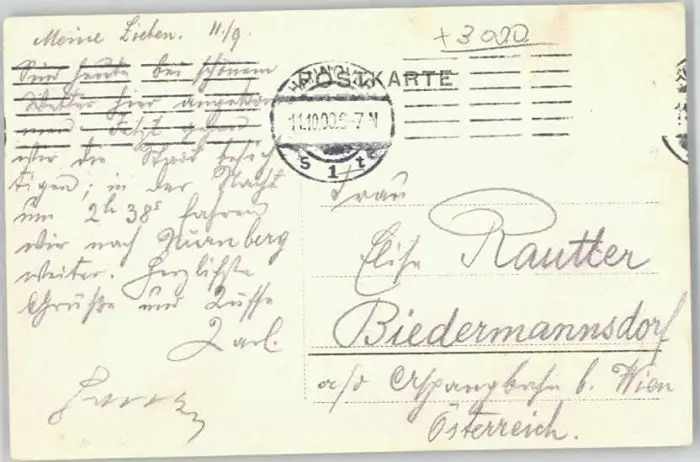 Meine Lieben. 11/9.
Sind heute bei schönem
Wetter hier angekom
men. Jetzt gehen
wir die Stadt besich
tigen; in der Nacht
um 2h 38 fahren
wir nach Nürnberg
weiter. Herzlichste
Grüße und Küsse
Karl.
+3000
POSTKARTE
11.10.09.6-7N
S 1 t
Frau
Elise Rautter
Biedermannsdorf
a/d Aspangbahn b. Wien
Österreich.